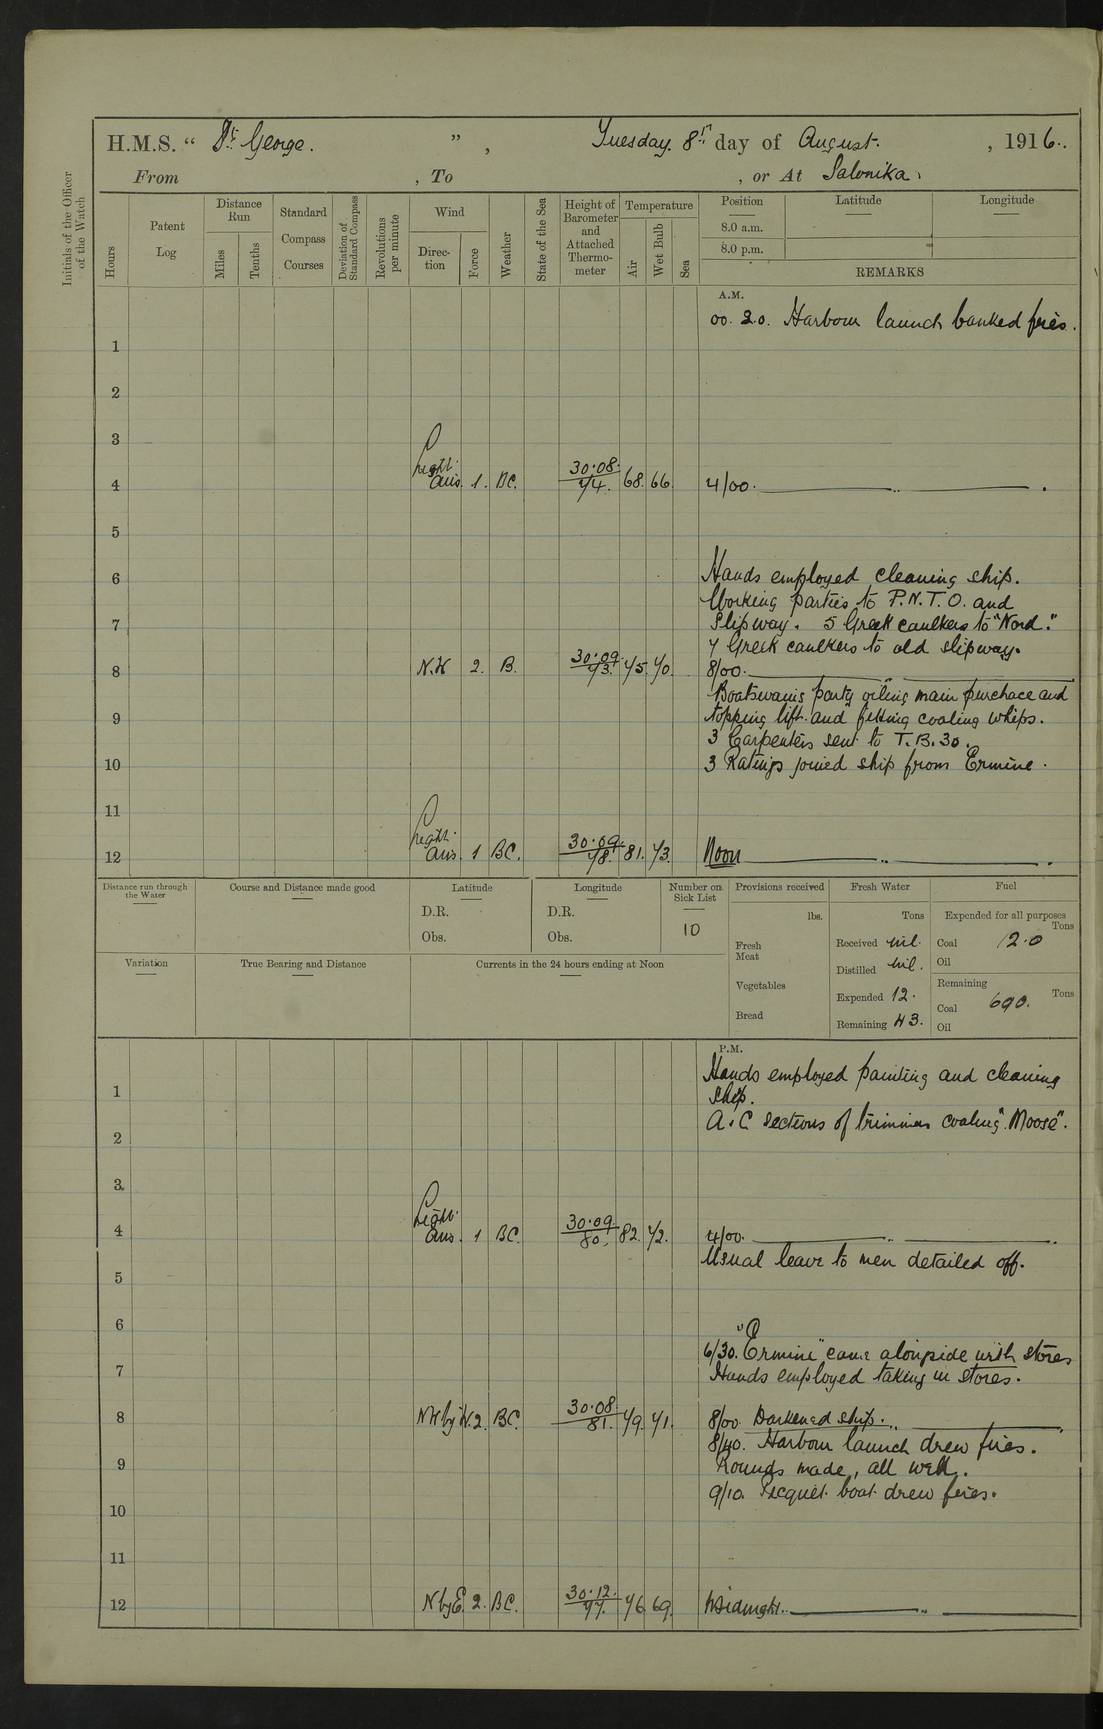 H.M.S. " St. George. ", Tuesday. 8th day of August. , 1916.
From , To , or At Salonika.
Initials of the Officer of the Watch
Hours
Patent Log
Distance Run
Miles
Tenths
Standard Compass Courses
Deviation of Standard Compass
Revolutions per minute
Wind
Direction
Force
Weather
State of the Sea
Height of Barometer and Attached Thermometer
Temperature
Air
Wet Bulb
Sea
Position
Latitude
Longitude
8.0 a.m.
8.0 p.m.
REMARKS
A.M.
00. 20. Harbour launch banked fires.
1
2
3
4 Light airs. 1. BC. 30.08. 74. 68. 66. 4/00.
5
6 Hands employed cleaning ship.
Working parties to P.N.T.O. and
7 Slipway. 5 Greek caulkers to "Nord."
7 Greek caulkers to old slipway.
8 N.W 2. B. 30.09. 73. 75. 70. 8/00.
Boatswains party oiling main purchace and
9 topping lift and fitting coaling whips.
3 Carpenters sent to T.B. 30.
10 3 Ratings joined ship from Ermine.
11
12 Light airs. 1 BC. 30.09. 78. 81. 73. Noon
Distance run through the Water
Course and Distance made good
Latitude
D.R.
Obs.
Longitude
D.R.
Obs.
Number on Sick List
10
Provisions received
lbs.
Fresh Meat
Vegetables
Bread
Fresh Water
Tons
Received nil.
Distilled nil.
Expended 12.
Remaining 43.
Fuel
Expended for all purposes
Tons
Coal 12.0
Oil
Remaining
Tons
Coal 690.
Oil
Variation
True Bearing and Distance
Currents in the 24 hours ending at Noon
P.M.
Hands employed painting and cleaning
1 ship.
A & C sections of trimmers coaling "Moose".
2
3
4 Light airs. 1 BC. 30.09. 80. 82. 72. 4/00.
Usual leave to men detailed off.
5
6
6/30. "Ermine" came alongside with stores
7 Hands employed taking in stores.
8 NW by W. 2. BC. 30.08. 81. 79. 71. 8/00. Darkened ship.
8/40. Harbour launch drew fires.
9 Rounds made, all well.
9/10. Picquet boat drew fires.
10
11
12 N by E. 2. BC. 30.12. 77. 76. 69. Midnight.